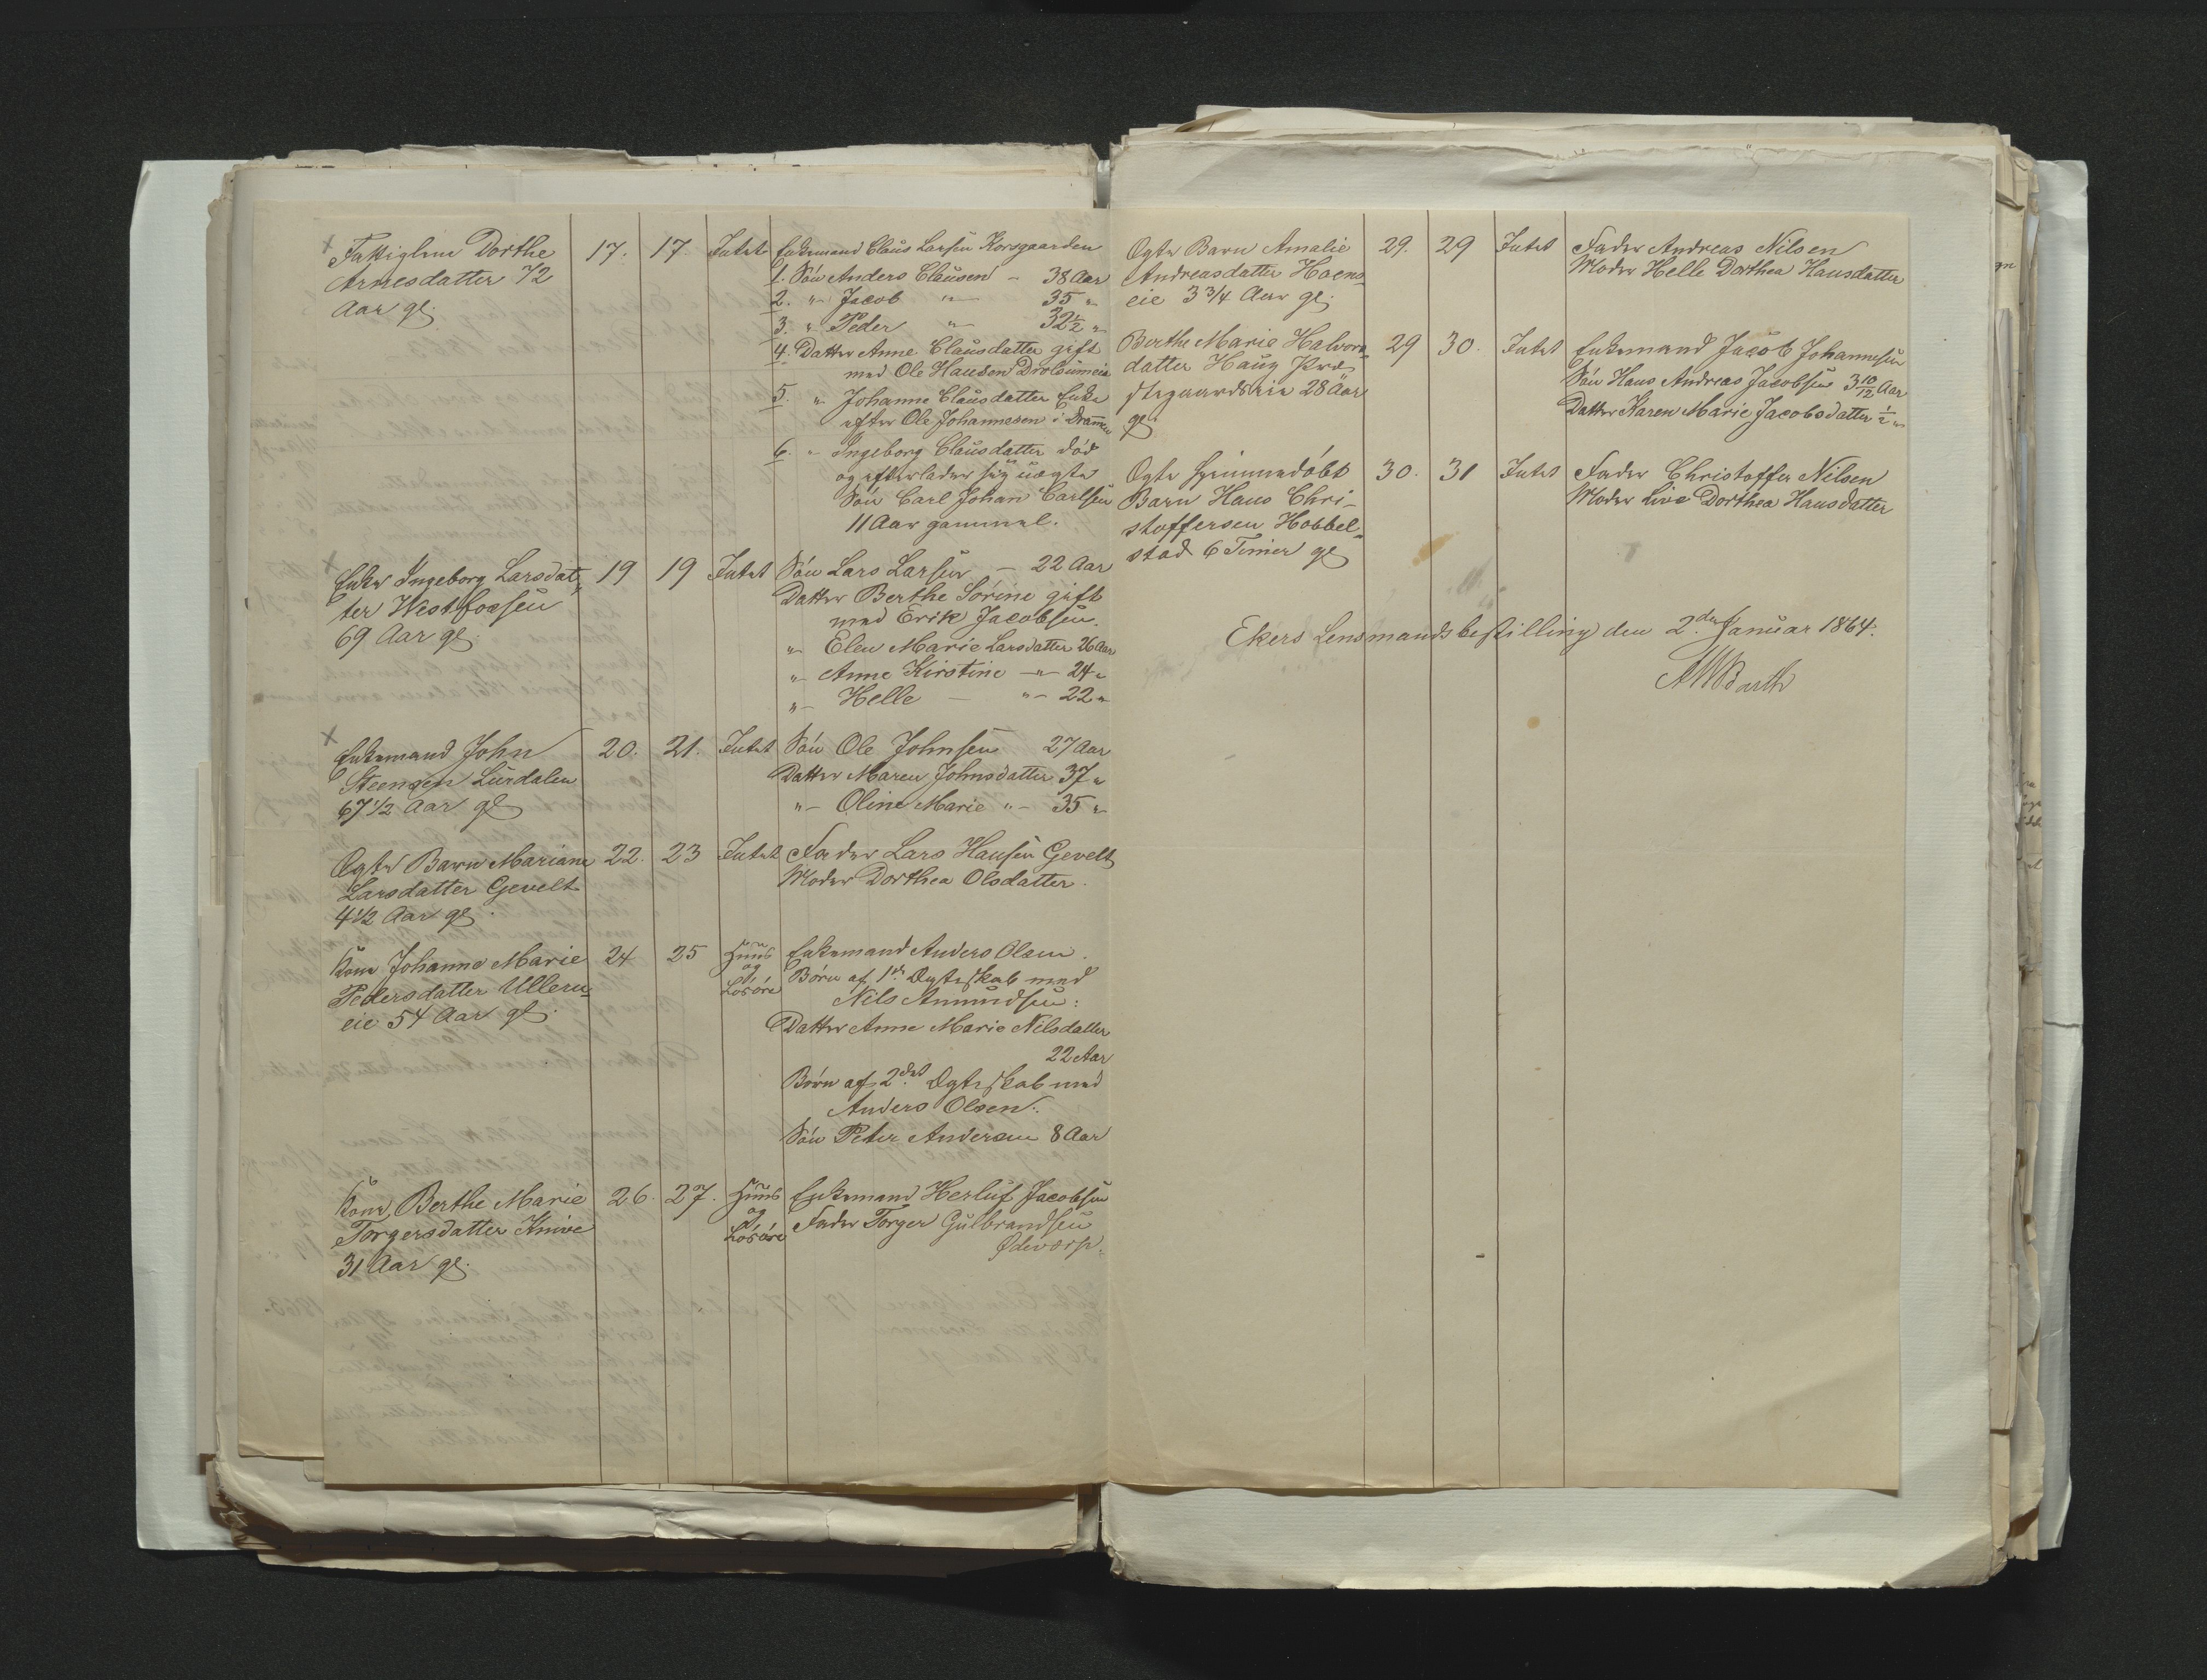 Fattiglem Dorthe 17. 17 Intet Enkemand Claus Larsen Korsgaarden
Arnesdatter 72 1. Søn Anders Clausen - 38 Aar
Aar gl. 2. "- Jacob "- 35 "-
3. "- Peder "- 32½ "-
4. Datter Anne Clausdatter gift
med Ole Hansen
5. "- Johanne Clausdatter Enke
efter Ole Johannesen i Drammen
6. "- Ingeborg Clausdatter død
og efterlader sig uægte
Søn Carl Johan Carlsen
11 Aar gammel.
Enke Ingeborg Larsdat- 19 19 Intet Søn Lars Larsen - 22 Aar
ter Westfossen Datter Berthe Sørine gift
69 Aar gl. med Erik Jacobsen.
"- Elen Marie Larsdatter 26 Aar
"- Anne Kirstine -"- 24 "-
"- Helle - "- 22 "-
Enkemand John 20. 21. Intet Søn Ole Johnsen 27 Aar
Steensen Lurdalen Datter Maren Johnsdatter 37 "-
67½ Aar gl "- Oline Marie "- 35 "-
Ægte Barn Mariane 22. 23 Intet Fader Lars Hansen Gevelt
Larsdatter Gevelt Moder Dorthea Olsdatter.
4½ Aar gl.
Kone Johanne Marie 24 25 Huus Enkemand Anders Olsen.
Pedersdatter Ullern- og Børn af 1ste Ægteskab med
eie 54 Aar gl. Løsøre Nils Amundsen:
Datter Anne Marie Nilsdatter
22 Aar
Børn af 2det Ægteskab med
Anders Olsen:
Søn Peter Andersen 8 Aar
Kone Berthe Marie 26. 27. Huus Enkemand Herluf Jacobsen
Torgersdatter Knive og Fader Torger Gulbrandsen
31 Aar gl. Løsøre Ødevarp.
Ægte Barn Amalie 29. 29 Intet Fader Andreas Nilsen
Andreasdatter Hoens- Moder Helle Dorthea Hansdatter
eie 3¾ Aar gl.
Berthe Marie Halvors- 29 30. Intet Enkemand Jacob Johannesen
datter Haug Præ- Søn Hans Andreas Jacobsen 3 10/12 Aar
stegaardseie 28 Aar Datter Karen Marie Jacobsdatter ½ "-
gl.
Ægte hjemmedøbt 30. 31 Intet Fader Christoffer Nilsen
Barn Hans Chri- Moder Live Dorthea Hansdatter
stoffersen Hobbel-
stad 6 Timer gl
Ekers Lensmandsbestilling den 2den Januar 1864.
Barth